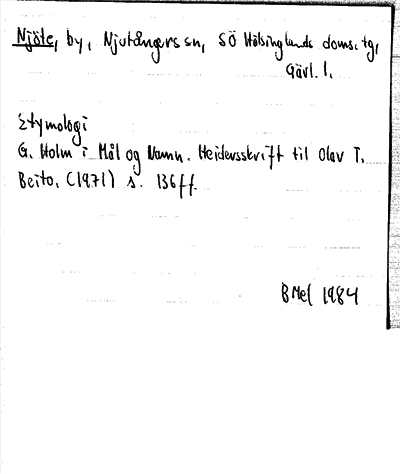 Njöte, by, Njutångers sn, SÖ Hälsinglands doms. tg,
Gävl. l.
Etymologi
G. Holm i Mål og Namn. Heidersskrift til Olav T.
Beito. (1971) s. 136 ff.
BMel 1984